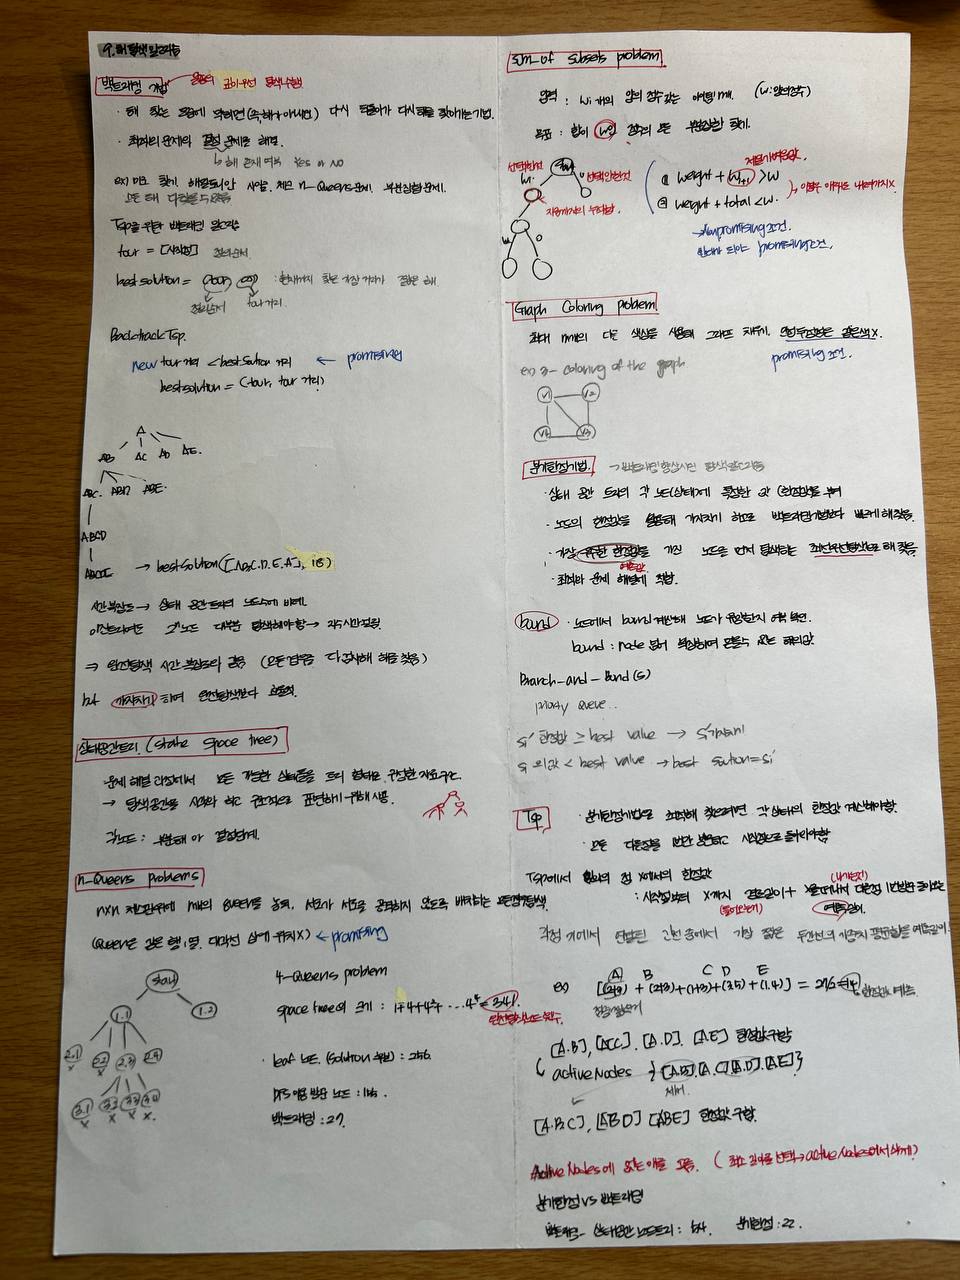 9. 해 탐색 알고리즘
백트래킹 기법
깊이우선 탐색 수행
· 해를 찾는 도중에 막히면 (즉 해가 아니면) 다시 되돌아가 다시 해를 찾아가는 기법.
· 최적화 문제와 결정 문제를 해결.
해 존재 여부 Yes or NO
ex) 미로 찾기, 해밀토니안 사이클, 체스 n-Queens 문제, 부분집합 문제.
TSP을 위한 백트래킹 알고리즘
tour = [시작점]
best solution = (tour, ∞) : 현재까지 찾은 가장 거리가 짧은 해
점의 순서 tour 거리.
Backtrack TSP.
new tour 거리 < best solution 거리 ← promising
best solution = (tour, tour 거리)
A
AB AC AD AE.
ABC. ABD ABE.
ABCD
ABCDE → best solution([A.B.C.D.E.A], 16)
시간 복잡도 → 상태 공간 트리의 노드 수에 비례.
⇒ 완전탐색 시간 복잡도와 같음 (모든 답을 다 검사해 해를 찾음)
but 가지치기 하며 완전탐색보다 효율적.
상태공간트리. (state space tree)
문제 해결 과정에서 모든 가능한 상태들을 트리 형태로 구성한 자료구조.
→ 탐색공간을 시각화 하고 구조적으로 표현하기 위해 사용.
각 노드 : 부분해 and 결정단계.
n-Queens problems
nxn 체스판위에 n개의 queen을 놓되, 서로가 서로를 공격하지 않도록 배치하는
(queen은 같은 행, 열, 대각선 상에 위치 X) ← promising
start
1.1 1.2
2.1 2.2 2.3 2.4
x x
3.1 3.2 3.3 3.4
x x x x.
4-Queens problem
space tree의 크기 : 1+4+4²+ .... 4⁴ = 341
완전탐색 노드 수.
· leaf 노드. (solution 후보) : 256.
백트래킹 : 27.
sum-of subsets problem
입력 : wi 개의 양의 정수 갖는 아이템 n개. (w : 양의정수)
목표 : 합이 w인 정수의 모든 부분집합 찾기.
start
wi 0
지금까지의 무게합.
w 0
① weight + wi+1 > w
② weight + total < w.
→ Nonpromising 조건.
promising 조건.
Graph Coloring problem
최대 m개의 다른 색상을 사용해 그래프 채우기. 인접 두 정점은 같은색 X.
promising 조건.
ex) 3- coloring of the graph
V1 V2
V4 V3
분기한정기법. → 백트래킹 향상시킨 탐색 알고리즘
· 상태 공간 트리의 각 노드(상태)에 특정한 값 (한정값)을 부여
· 노드의 한정값을 활용해 가지치기 하므로 백트래킹기법보다 빠르게 해 찾음.
· 가장 우수한 한정값을 가진 노드를 먼저 탐색하는 최선우선탐색으로 해 찾음
예측값
· 최적화 문제 해결에 적합.
bound · 노드에서 bound 계산해 노드가 유망한지 여부 확인.
bound : node 넘어 확장하여 얻을 수 있는 해의 값
Branch-and-Bond(s)
priority queue..
si' 한정값 ≥ best value → si' 가지치기
si 의 값 < best value → best solution = si'
TSP
· 분기한정기법으로 최적해 찾으려면 각 상태의 한정값 계산해야함.
· 모든 다른 점을 한번만 방문하고 시작점으로 돌아와야함
TSP에서 임의의 점 X에서의 한정값
: 시작점부터 X까지 경로길이 +
예측길이.
각 점 기에서 연결된 간선 중에서 가장 짧은 두 간선의 가중치 평균합을 예측길이.
A B C D E
ex) [(2+3) + (2+3)+(1+3)+(3.5)+(1.4)] = 27/2 = 14 한정값 예측.
[A.B], [A.C] [A.D]. [A.E] 한정값 구함
activeNodes { [A.B], [A.C] [A.D], [A.E] }
제거
[A.B.C], [A.B.D] [ABE] 한정값 구함.
Active Nodes에 있는 애들 고름. (최소 길이를 선택 → active Nodes에서 삭제)
분기한정 vs 백트래킹
백트래킹 - 상태공간 노드트리 : 54. 분기한정 : 22.